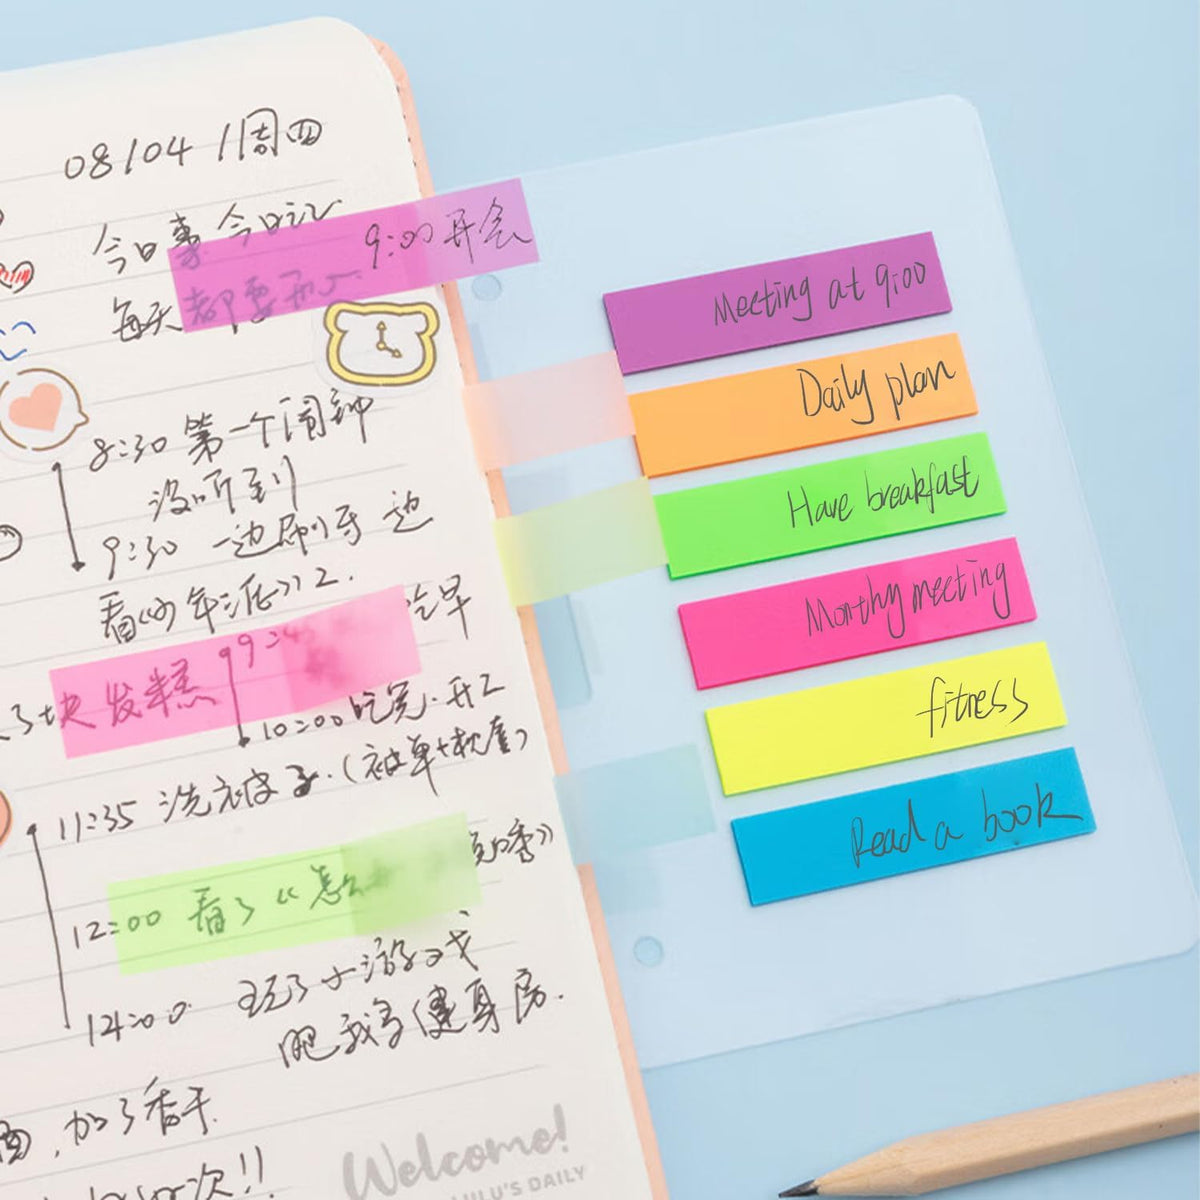 08/04 /周四
今日事 今日记
9:00 开会
每天都要开心
8:30 第一个闹钟
没听到
9:30 一边刷牙 边
看《少年派》2.
吃早
了块发糕
10:00 吃完.开工
11:35 洗被子.(被单+枕套)
12:00 看了《怎么
14:00 玩了小游戏
肥我
健身房.
,加了香干
次!!
Welcome!
LULU'S DAILY
Meeting at 9:00
Daily plan
Have breakfast
Monthy meeting
fitness
Read a book